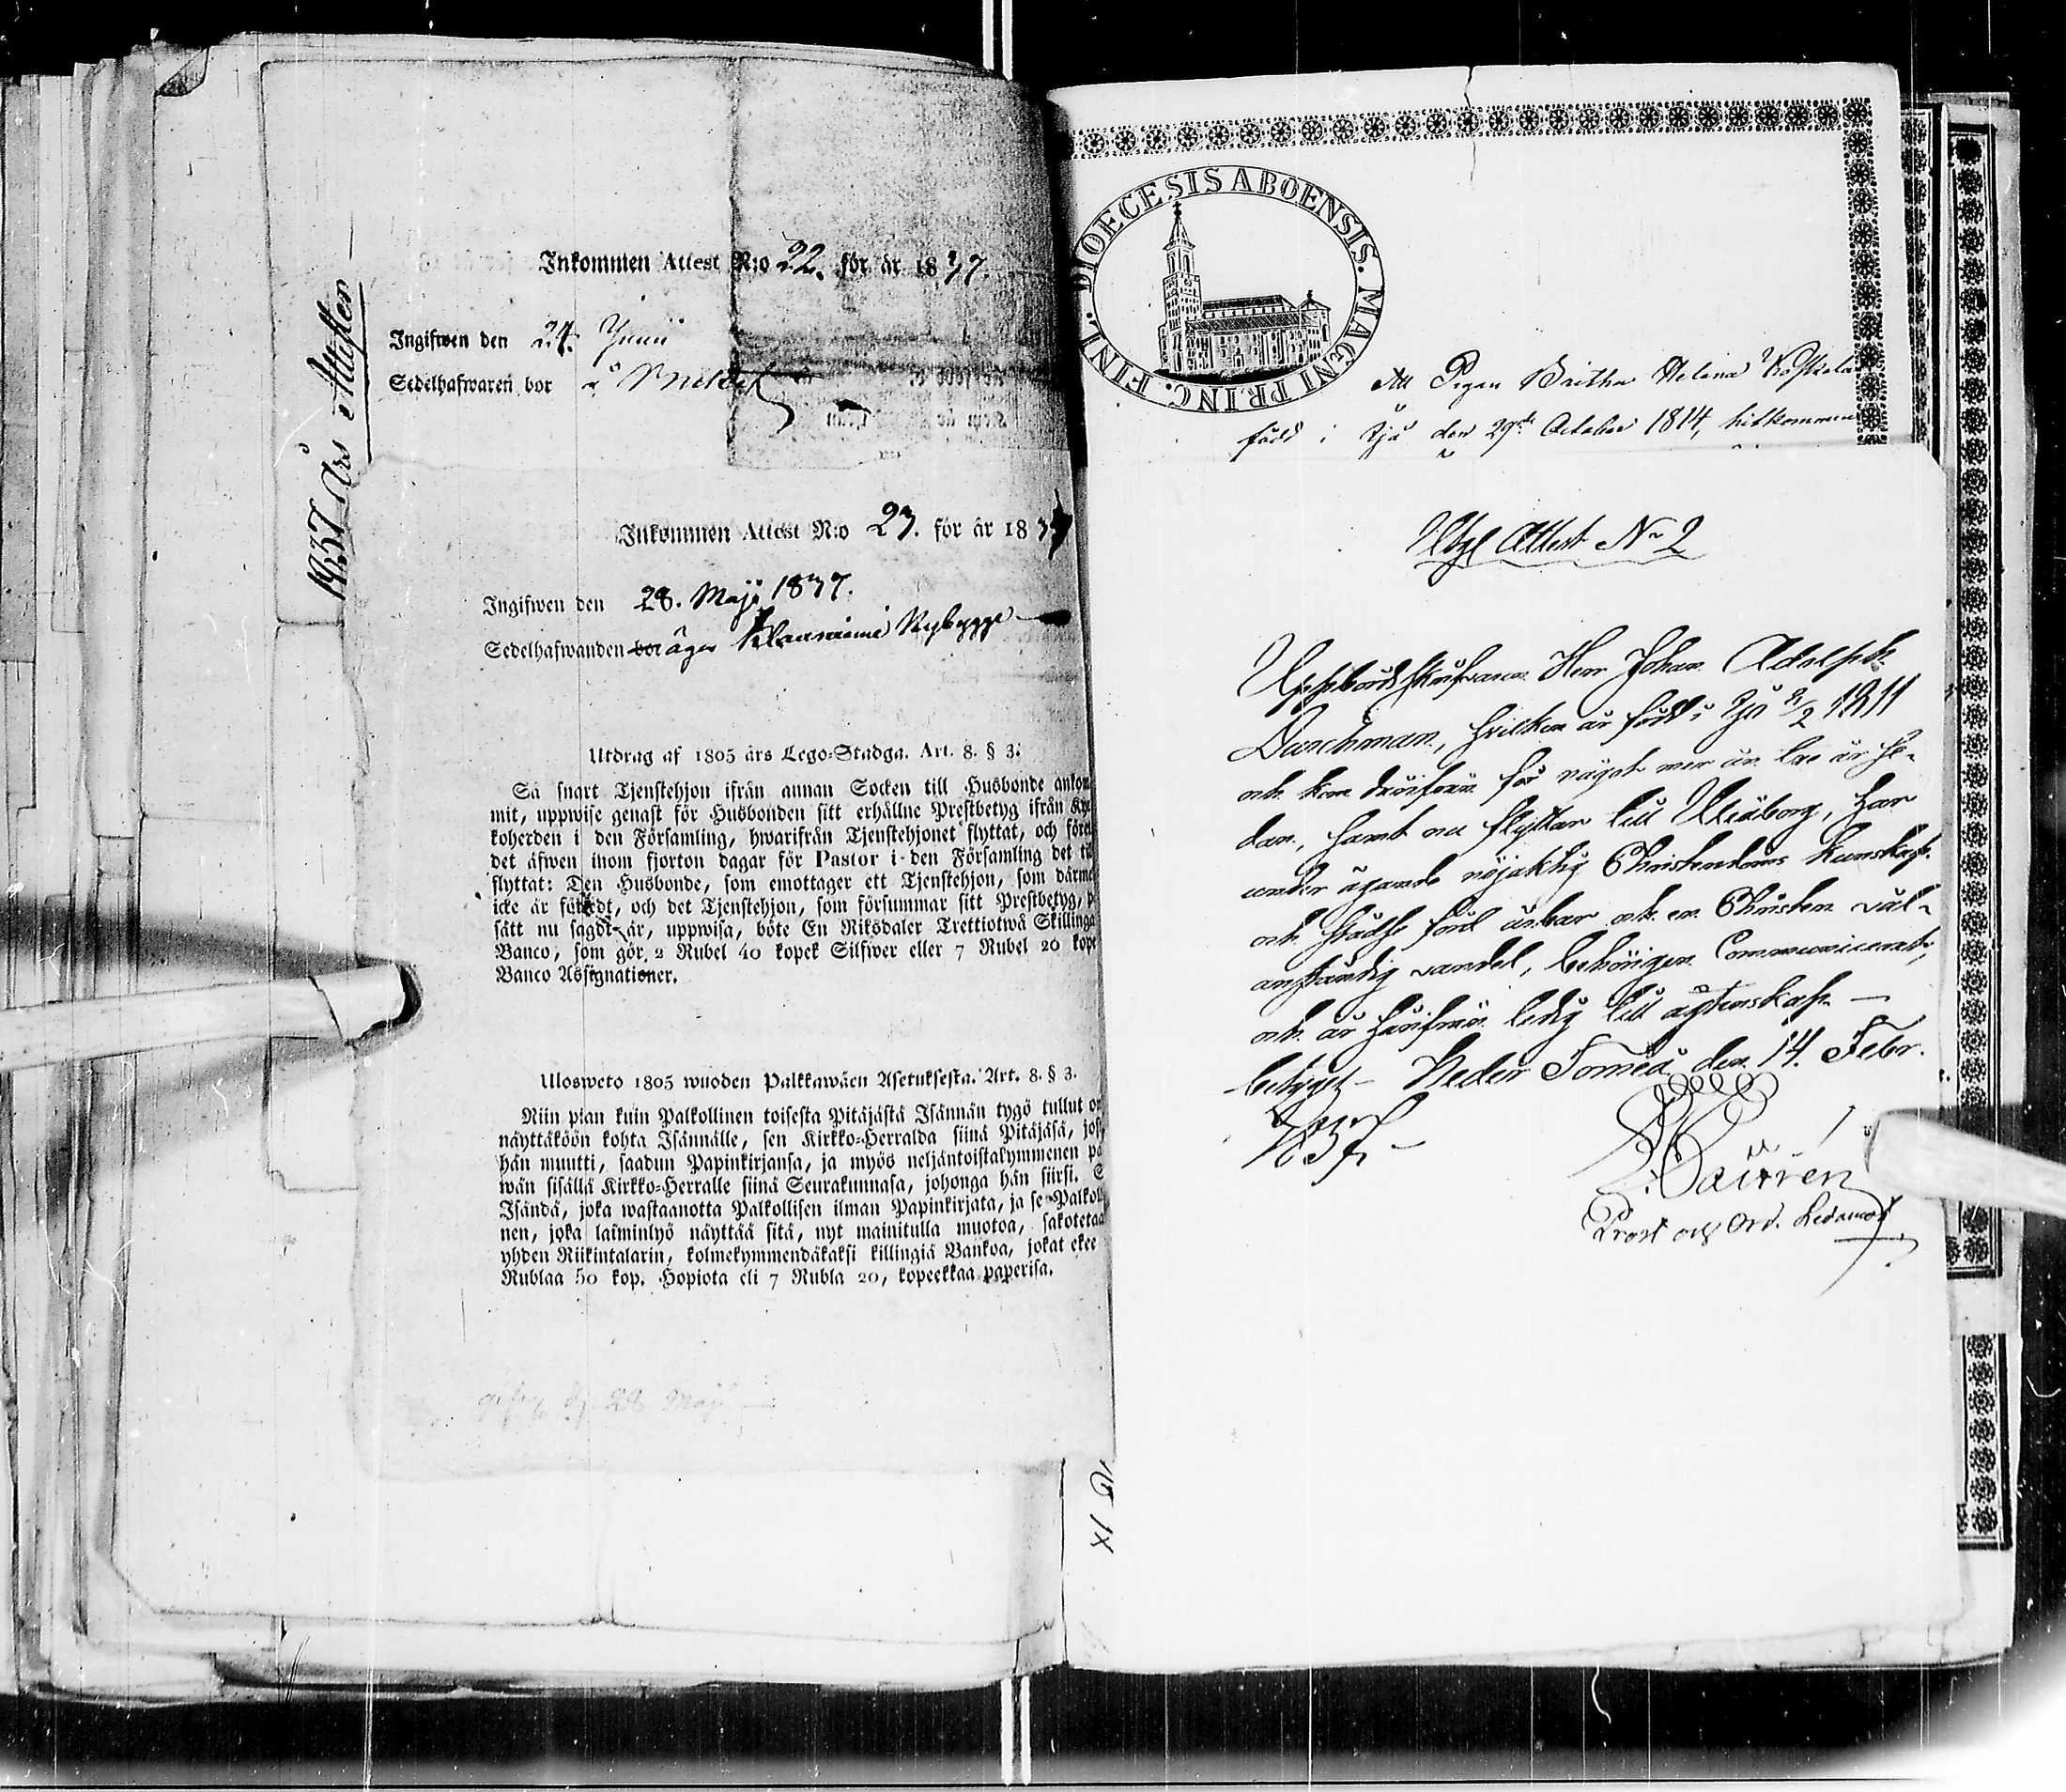 1837 års Attester
Inkommen Attest N:o 22. för år 1837.
Ingifwen den 24. Junii
Sedelhafwaren bor å
Inkommen Attest N:o 23. för år 1837
Ingifwen den 28. Maji 1837.
Sedelhafwanden bor äger Klaaraniemi Nybygge
Utdrag af 1805 års Lego-Stadga. Art. 8. § 3.
Så snart Tjenstehjon ifrån annan Socken till Husbonde ankom
mit, uppwise genast för Husbonden sitt erhållne Prestbetyg ifrån Kyr
koherden i den Församling, hwarifrån Tjenstehjonet flyttat, och före
det äfwen inom fjorton dagar för Pastor i den Församling det till
flyttat: Den Husbonde, som emottager ett Tjenstehjon, som därme
icke är försedt, och det Tjenstehjon, som försummar sitt Prestbetyg, p
sätt nu sagdt är, uppwisa, böte En Riksdaler Trettiotwå Skillinga
Banco, som gör 2 Rubel 40 kopek Silfwer eller 7 Rubel 20 kope
Banco Assignationer.
Ulosweto 1805 wuoden Palkkawäen Asetuksesta. Art. 8. § 3.
Niin pian kuin Palkollinen toisesta Pitäjästä Isännän tygö tullut on
näyttäköön kohta Isännälle, sen Kirkko-Herralda siinä Pitäjäsä, jost
hän muutti, saadun Papinkirjansa, ja myös neljäntoistakymmenen pä
wän sisällä Kirkko-Herralle siinä Seurakunnasa, johonga hän siirsi. S
Isändä, joka wastaanotta Palkollisen ilman Papinkirjata, ja se Palkolli
nen, joka laiminlyö näyttää sitä, nyt mainitulla muotoa, sakotetaa
yhden Riikintalarin, kolmekymmendäkaksi killingiä Bankoa, jokat ekee
Rublaa 50 kop. Hopiota eli 7 Rubla 20, kopeekkaa paperisa.
28 Maji
DIOECESIS ABOENSIS. MAGNI PRINC. FINL.
Att Pigan Britha Helena Koskela
född i Ijå den 29de October 1814, hitkommen
Utgl Attest No 2
Uppbördsskrifvaren Herr Johan Adolph
Durchman, hvilken är född i Ijå 9/2 1811
och kom därifrån för något mer än tre år se-
dan, samt nu flyttar till Uleåborg, har
under ägande nöjaktig Christendoms kunskap
och städse förd ärbar och en Christen väl-
anständig vandel, behörigen Communicerat,
och är härifrån ledig till ägtenskap —
betyget — Neder Torneå den 14. Febr.
1837 —
Prost och Ord. Ledamot